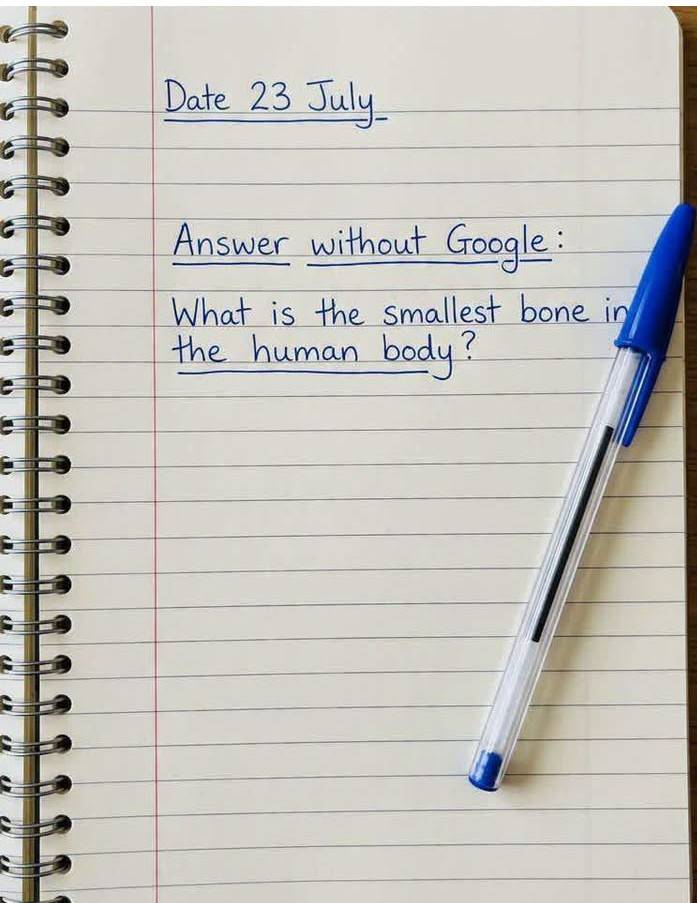 Date 23 July
Answer without Google:
What is the smallest bone in
the human body?